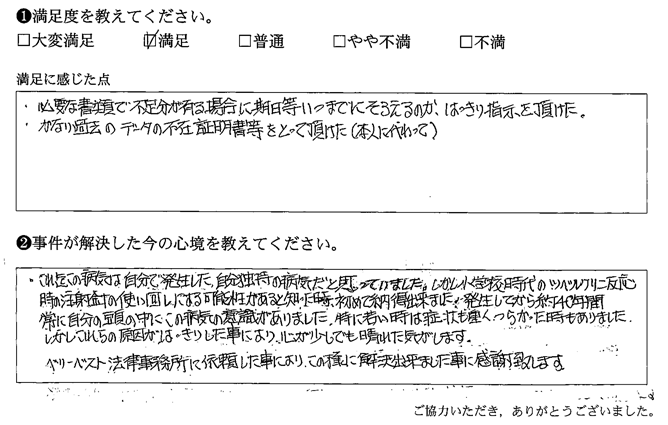 ❶満足度を教えてください。
□大変満足 ☑満足 □普通 □やや不満 □不満
満足に感じた点
・必要な書類で不足分が有る場合に期日等いつまでにそろえるのか、はっきり指示を頂けた。
・かなり過去のデータの不在証明書等をとって頂けた(本人に代わって)
❷事件が解決した今の心境を教えてください。
・これまでこの病気は自分で発生した、自分独特の病気だと思っていました。しかし小学校時代のツベルクリン反応
時の注射針の使い回しによる可能性があると知った時、初めて納得出来ました。発生してから約40年間
常に自分の頭の中にこの病気の意識がありました。特に若い時は症状も重く、つらかった時もありました。
しかしこれらの原因がはっきりした事により、心が少しでも晴れた気がします。
ベリーベスト法律事務所に依頼した事により、この様に解決出来ました事に感謝致します
ご協力いただき、ありがとうございました。